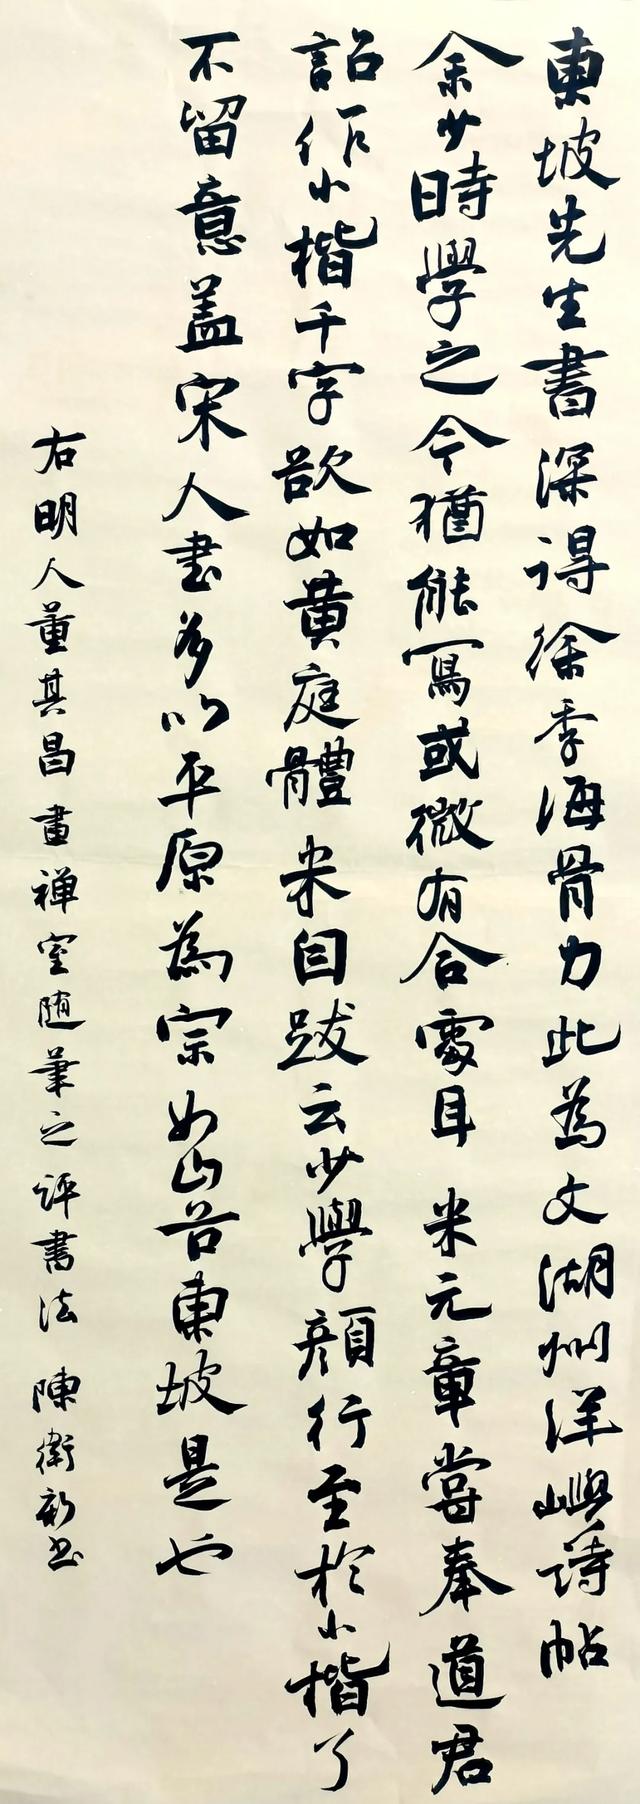 東坡先生書深得徐季海骨力此為文湖州洋嶼詩帖
余少時學之今猶能寫或微有合處耳米元章嘗奉道君
詔作小楷千字欲如黃庭體米自跋云少學顏行至於小楷了
不留意盖宋人書多以平原為宗如山谷東坡是也
右明人董其昌畫禅室随筆之評書法 陳衛新书